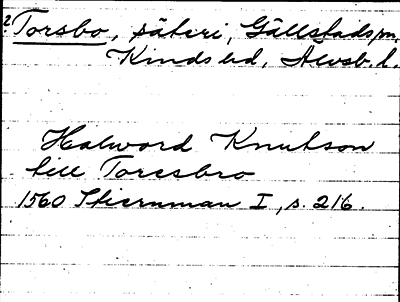 ? Torsbo, säteri, Gällstads sn,
Kinds hd, Älvsb. l.
Halword Knutson
till Torssbro
1560 Stiernman I, s. 216.